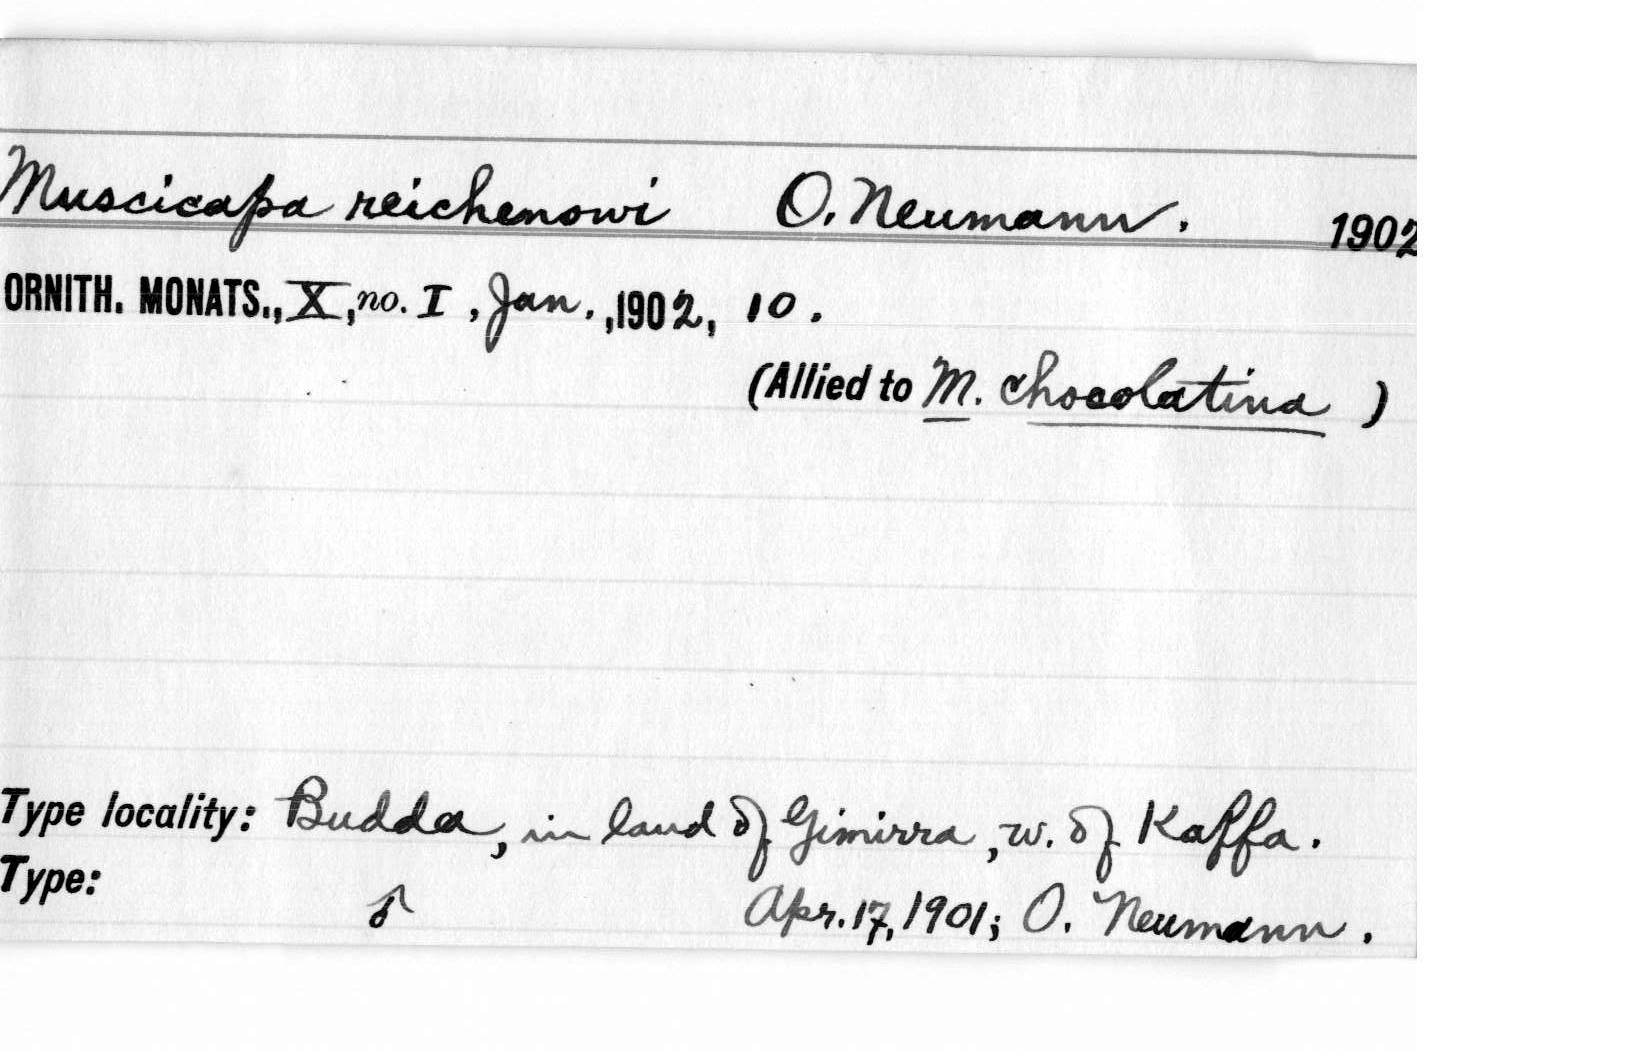 Muscicapa reichenowi O. Neumann. 1902
ORNITH. MONATS., X, no. I, Jan., 1902, 10.
(Allied to M. chocolatina )
Type locality: Budda, in land of Gimirra, w. of Kaffa.
Type: ♂ Apr. 17, 1901; O. Neumann.